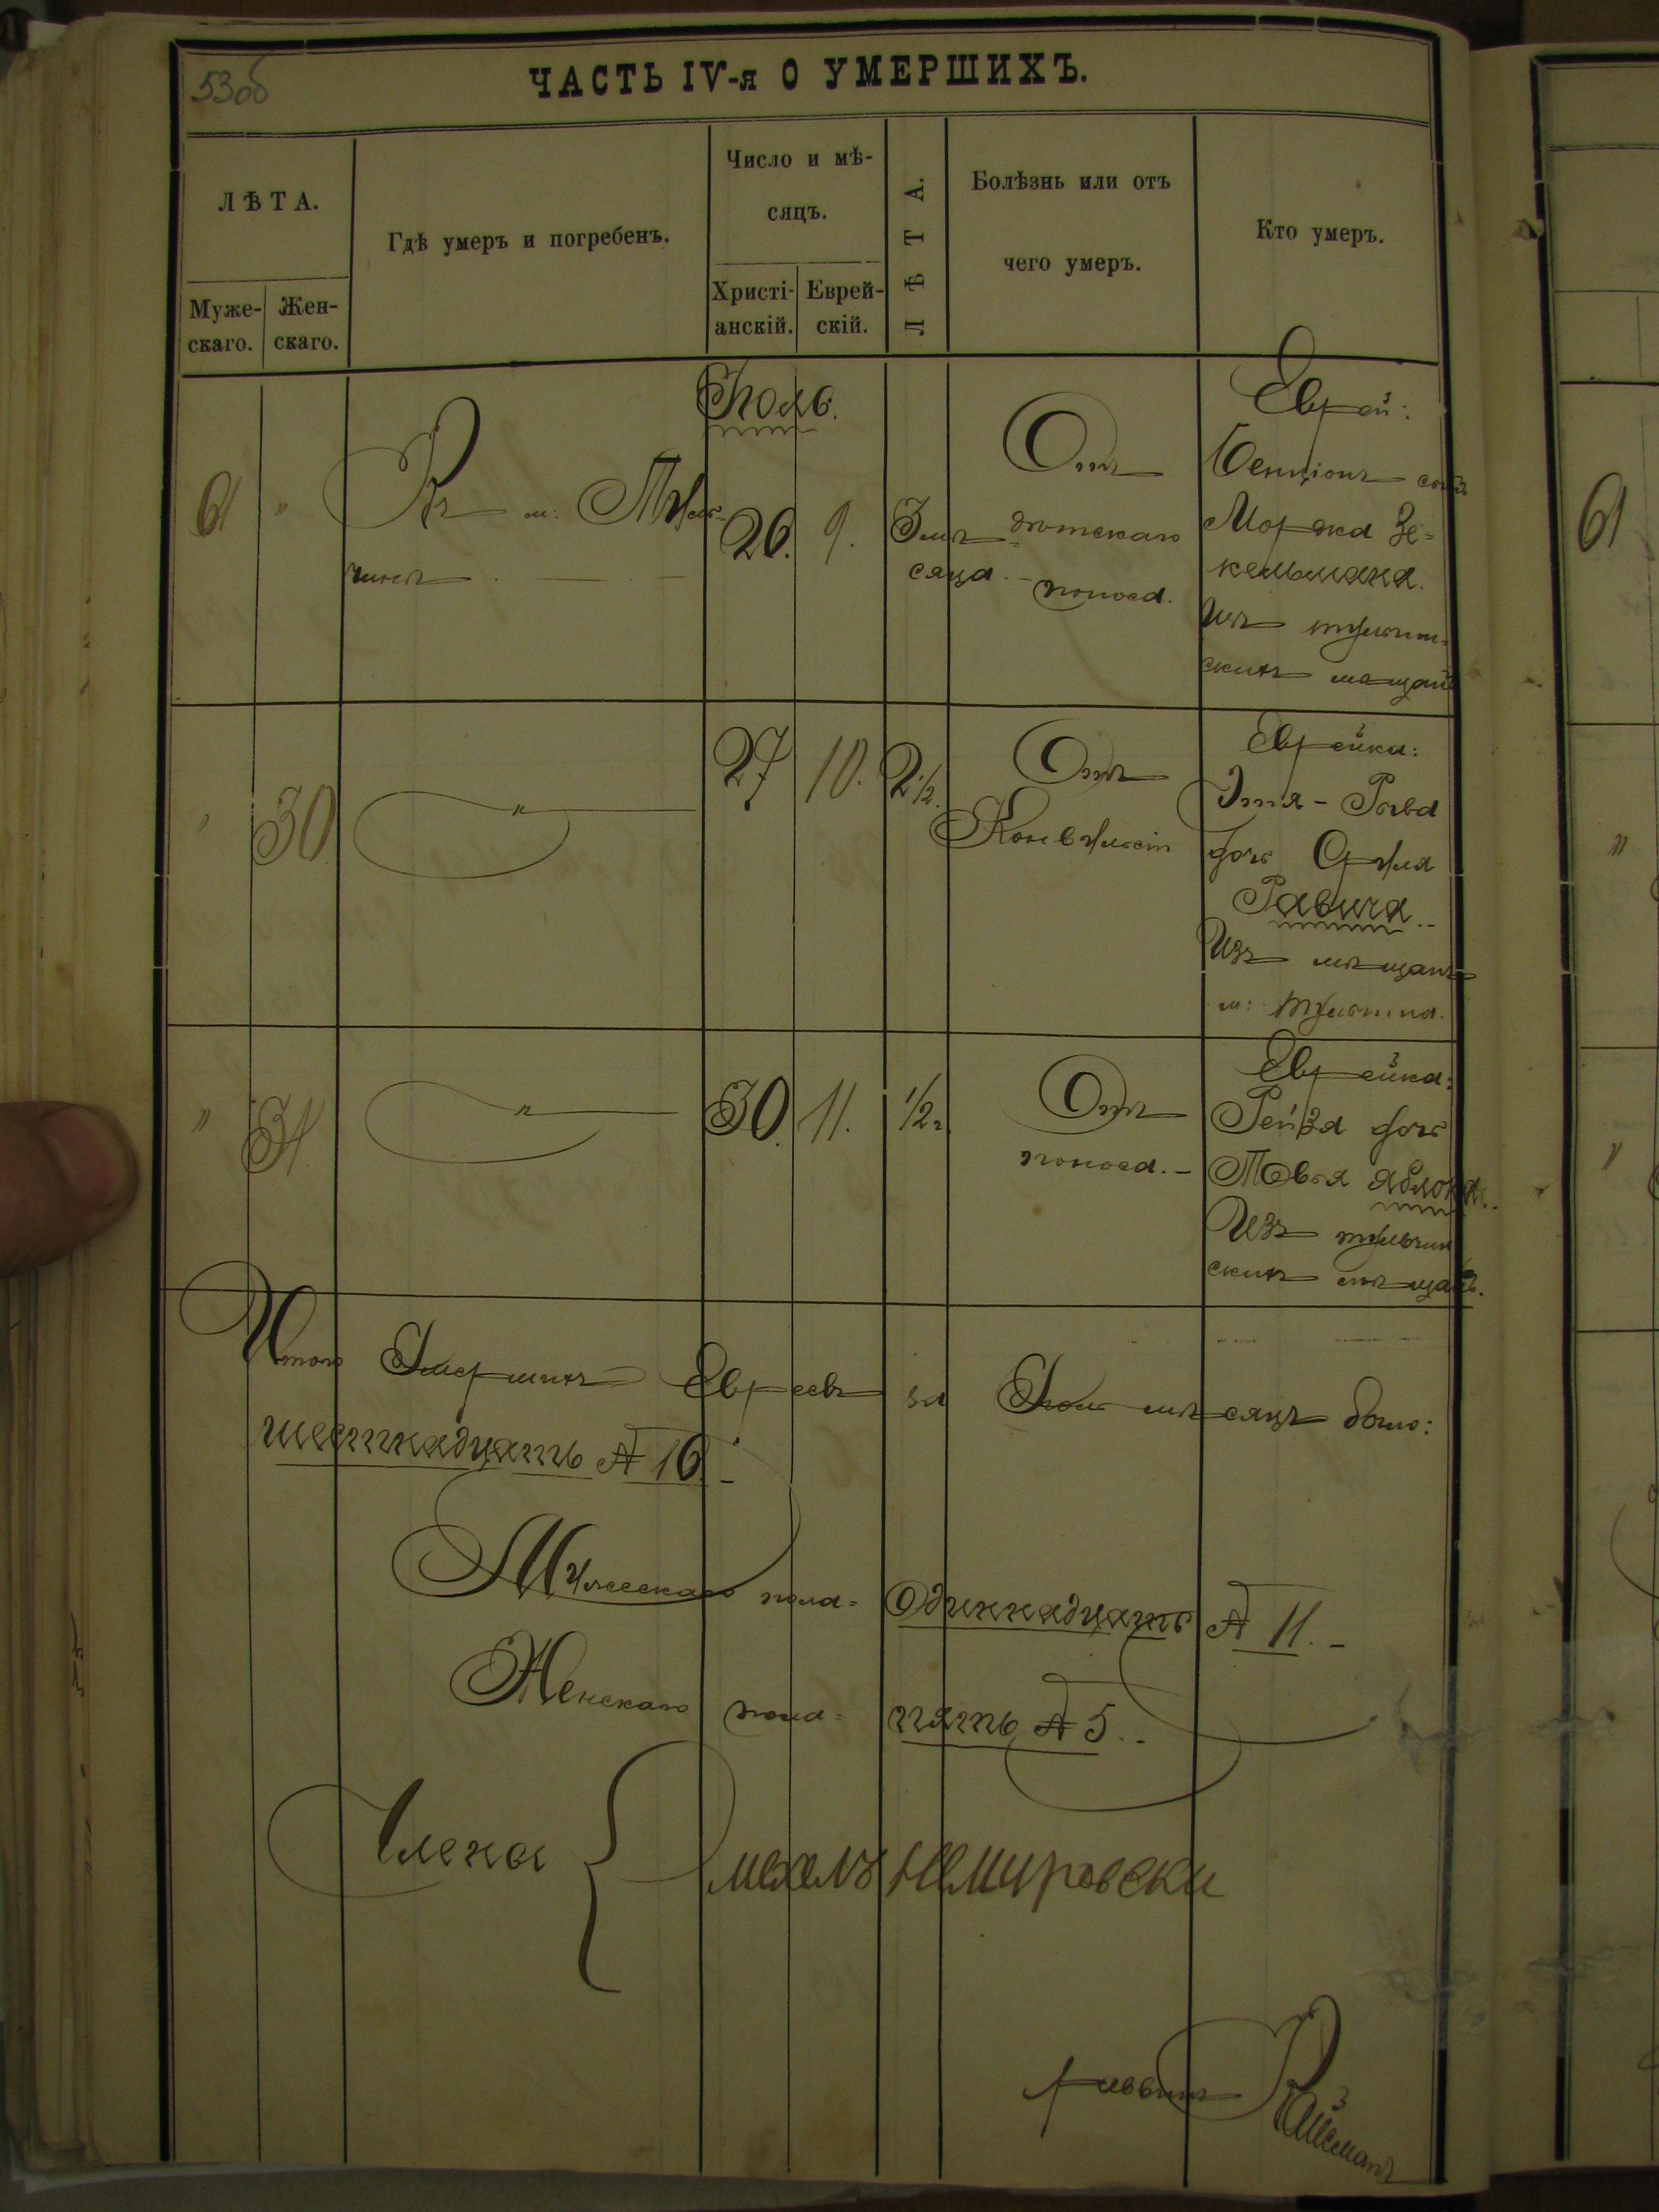 53об
ЧАСТЬ IV-я О УМЕРШИХЪ.
ЛѢТА.
Муже-
скаго.
Жен-
скаго.
Гдѣ умеръ и погребенъ.
Число и мѣ-
сяцъ.
Христі-
анскій.
Еврей-
скій.
ЛѢТА.
Болѣзнь или отъ
чего умеръ.
Кто умеръ.
Іюль.
61
"
Въ м: Туль-
чинѣ
26.
9.
3 мѣ-
сяца.
Отъ
дѣтскаго
поноса.
Еврей:
Бенціонъ сынъ
Моржка Зе-
кельмана.
Изъ тульчин-
скихъ мѣщанъ
"
30
"
27
10.
2 1/2.
Отъ
Конвульсіи
Еврейка:
Этя - Рыва
дочь Сруля
Равича.
Изъ мѣщанъ
м: Тульчина.
"
31.
"
30.
11.
1/2 г.
Отъ
поноса. -
Еврейка:
Рейза дочь
Товья Яблока.
Изъ тульчин
скихъ мѣщанъ.
Итого Умершихъ Евреевъ за Іюль мѣсяцъ было:
шестнадцать № 16. -
Мужескаго пола = Одиннадцать № 11. -
Женскаго пола = пять № 5. -
Члены { мехелъ немировски
раввинъ
61
"
"